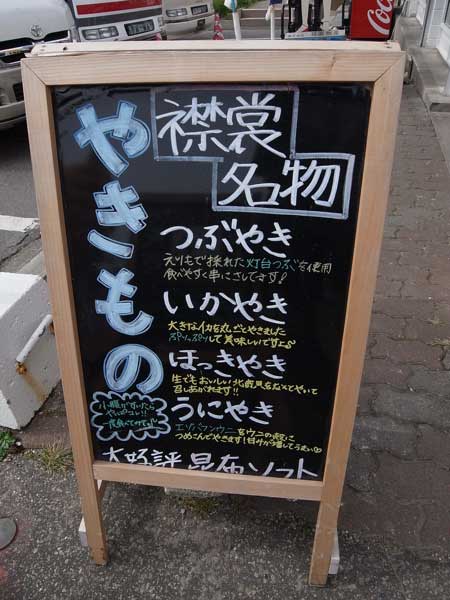 襟裳
名物
やきもの
つぶやき
えりもで採れた灯台つぶを使用
食べやすく串にさしてます♪
いかやき
大きなイカを丸ごとやきました
プリップリして美味しいですよ
ほっきやき
生でもおいしい北寄貝を
召しあがれ!!
うにやき
エゾバフンウニをウニの殻に
つめこんでやきます!甘みが増してうまい♡
小腹がすいたら
やっぱコレ!!
一度食べてみて
大好評 昆布ソフト
Coca